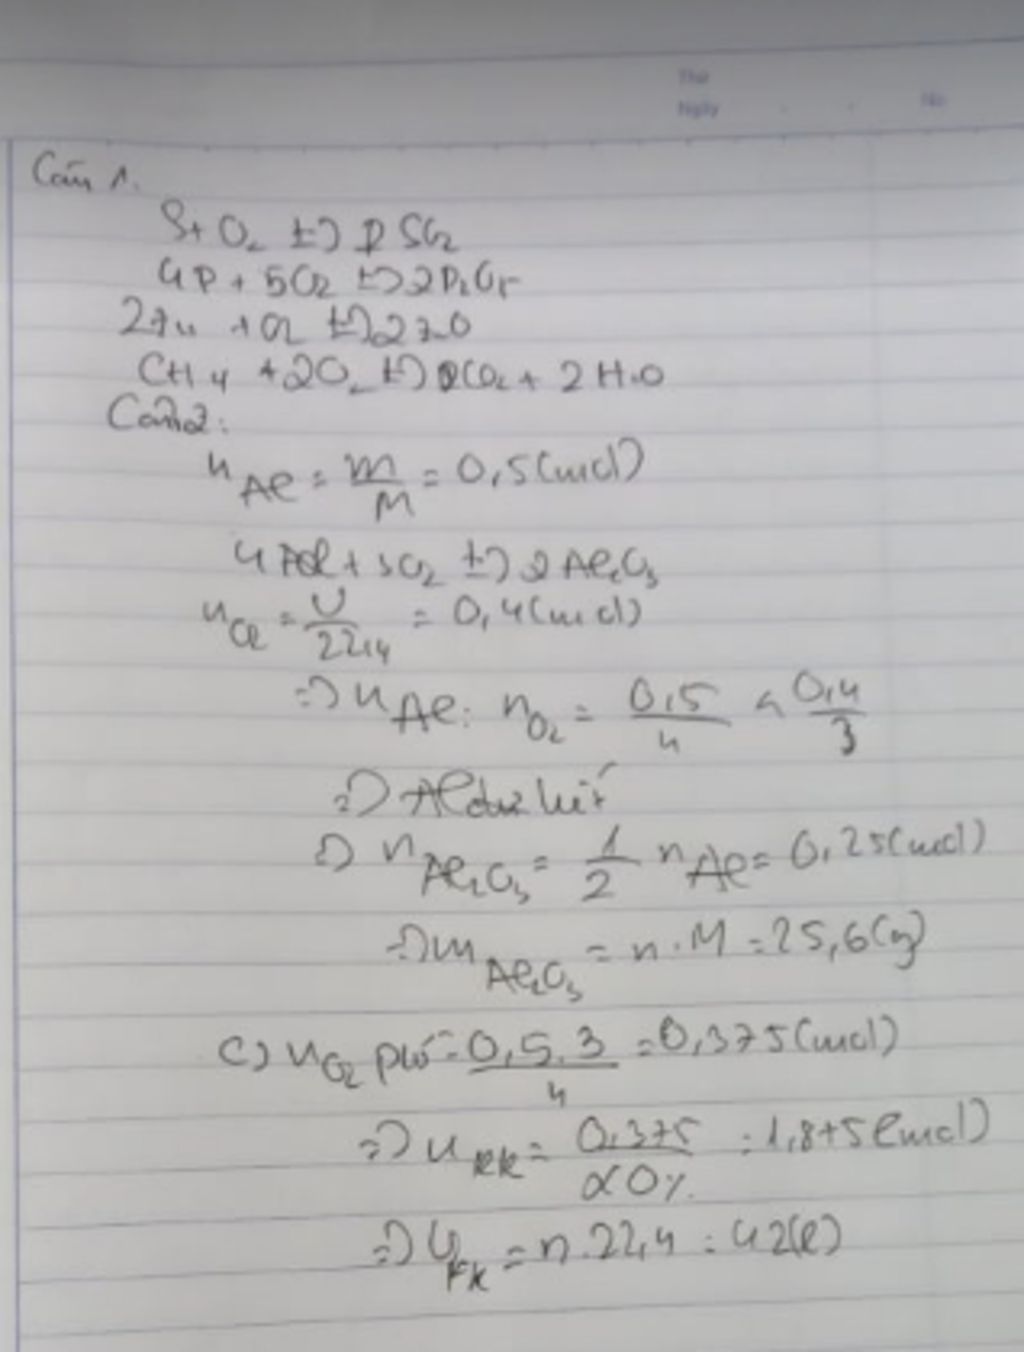 Thứ
Ngày No
Câu 1.
S + O₂ t°→ SO₂
4P + 5O₂ t°→ 2P₂O₅
2Zn + O₂ t°→ 2ZnO
CH₄ + 2O₂ t°→ CO₂ + 2H₂O
Câu 2:
n_Al = m/M = 0,5 (mol)
4Al + 3O₂ t°→ 2Al₂O₃
n_O₂ = V/22,4 = 0,4 (mol)
=> n_Al : n_O₂ = 0,5/4 < 0,4/3
=> Al hết
=> n_Al₂O₃ = 1/2 n_Al = 0,25 (mol)
=> m_Al₂O₃ = n.M = 25,6 (g)
c) n_O₂ pư = 0,5.3/4 = 0,375 (mol)
=> n_kk = 0,375/20% = 1,875 (mol)
=> V_kk = n.22,4 = 42 (l)